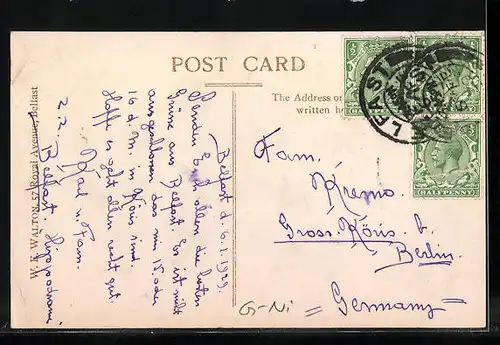 POST CARD
The Address
written
Belfast d. 6.1.1929.
Senden Euch allen die besten
Grüsse aus Belfast. Es ist nicht
ausgeschlossen das wir 15. oder
16 d. M. in Köris sind.
Hoffe es geht allen recht gut.
Karl u. Fam.
Z. Z.
Belfast. Hippodrome
W. E. WALTON, 57 Royal Avenue, Belfast
Fam.
Kremo.
Gross. Köris b.
Berlin.
Germany
G-Ni
HALFPENNY